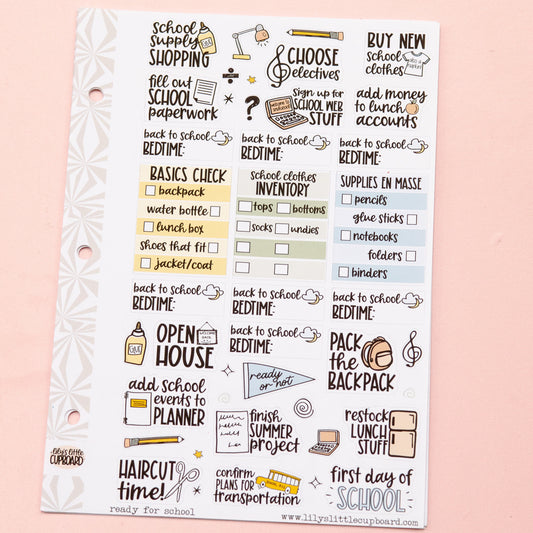 school
supply
SHOPPING
GLUE
CHOOSE
electives
BUY NEW
school
clothes
fill out
SCHOOL
paperwork
Sign up for
SCHOOL WEB
STUFF
add money
to lunch
accounts
back to school
BEDTIME:
back to school
BEDTIME:
back to school
BEDTIME:
BASICS CHECK
backpack
water bottle
lunch box
shoes that fit
jacket/coat
school clothes
INVENTORY
tops
bottoms
socks
undies
SUPPLIES EN MASSE
pencils
glue sticks
notebooks
folders
binders
back to school
BEDTIME:
back to school
BEDTIME:
back to school
BEDTIME:
GLUE
OPEN
HOUSE
back to school
BEDTIME:
PACK
the
BACKPACK
add school
events to
PLANNER
ready
or not
finish
SUMMER
project
restock
LUNCH
STUFF
lily's little
CUPBOARD
HAIRCUT
time!
confirm
PLANS FOR
transportation
first day of
SCHOOL
ready for school
www.lilyslittlecupboard.com